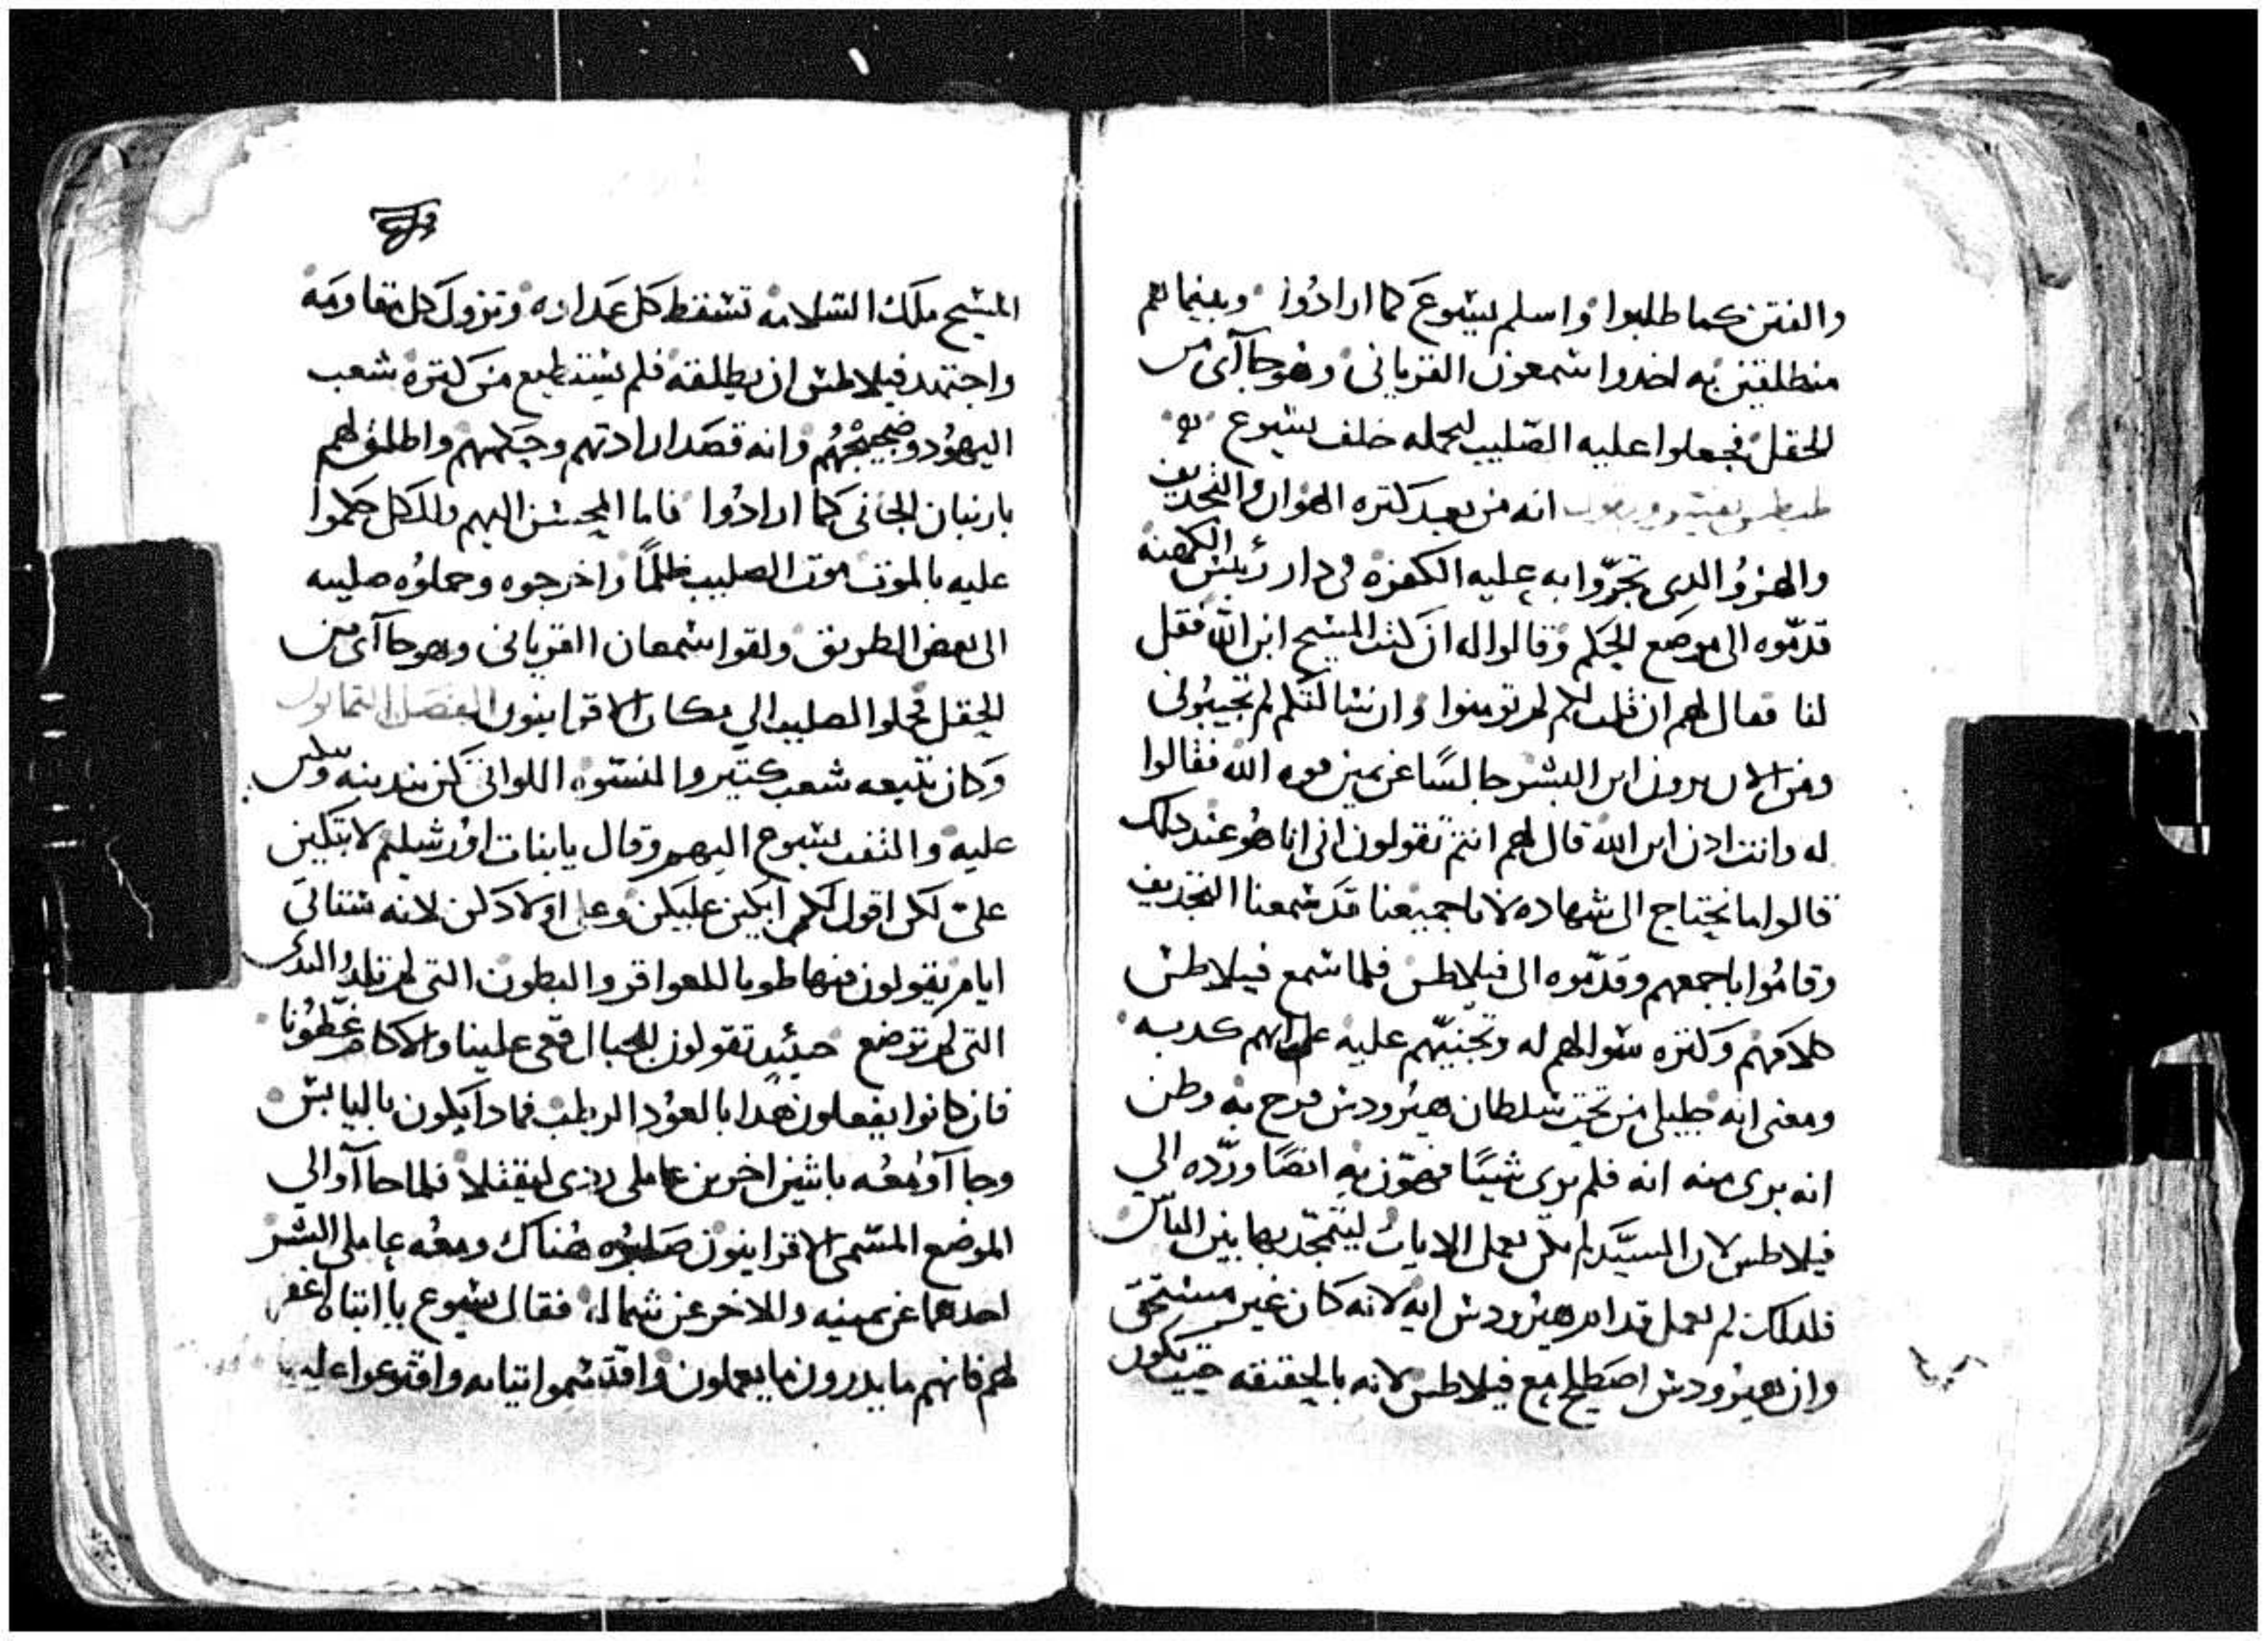 والفتن كما طلبوا واسلم يسوع كما ارادوا وبينما هم
منطلقين به اخدوا سمعون القرياني وهو جاآى من
الحقل فجعلوا عليه الصليب ليحمله خلف يسوع
طيطس يفسر ويقول انه من بعد كتره الهوان والتجديف
والهزو الدى تجروا به عليه الكفره فى دار رئيس الكهنه
قدموه الى موضع الحكم وقالوا له ان كنت المسيح ابن الله فقل
لنا فقال لهم ان قلت لكم لم تومنوا وان سالتكم لم تجيبونى
ومن الان يرون ابن البشر جالسا عن يمين قوه الله فقالوا
له وانت ادن ابن الله قال لهم انتم تقولون انى انا هو عند دلك
قالوا ما نحتاج الى شهاده لانا جميعنا قد سمعنا التجديف
وقاموا باجمعهم وقدموه الى فيلاطس فلما سمع فيلاطس
كلامهم وكتره سوالهم له وتجنيهم عليه علم انهم كدبه
ومعنى انه جليلى من تحت سلطان هيرودس فرح به وظن
انه يرى منه ايه فلم يرى شيئا فهون به ايضا ورده الى
فيلاطس لان السيد لم يكن يعمل الايات ليتمجد بها بين الناس
فلدلك لم يعمل قدام هيرودس ايه لانه كان غير مستحق
وان هيرودس اصطلح مع فيلاطس لانه بالحقيقه حيث يكون
المسيح ملك السلامه تسقط كل عداوه وتزول كل مقاومه
واجتهد فيلاطس ان يطلقه فلم يستطيع من كتره شعب
اليهود وضجيجهم وانه قصد ارادتهم وحكمهم واطلق لهم
بارنبان الجانى كما ارادوا فاما المحسن اليهم ولدكل حكموا
عليه بالموت موت الصليب ظلما واخرجوه وحملوه صليبه
الى بعض الطريق ولقوا سمعان القريانى وهو جاآى من
الحقل فحملوا الصليب الى مكان الاقرانيون الفصل التمانون
وكان تتبعه شعب كتير والنسوه اللواتى كن يندبنه ويبكين
عليه والتفت يسوع اليهم وقال يا بنات اورشليم لا تبكين
على لكن اقول لكم ابكين عليكن وعلى اولادكن لانه ستاتى
ايام يقولون فيها طوبا للعواقر والبطون التى لم تلد والتدى
التى لم ترضع حينيد تقولون للجبال قعى علينا والاكام غطونا
فان كانوا يفعلون هدا بالعود الرطب فمادا يكون باليابس
وجاآو معه باتنين اخرين عاملى ردى ليقتلا فلما جاآو الى
الموضع المسمى الاقرانيون صلبوه هناك ومعه عاملى الشر
احدهما عن يمينه والاخر عن شماله فقال يسوع يا ابتاه اغفر
لهم فانهم ما يدرون ما يعملون واقتسموا تيابه واقترعوا عليها